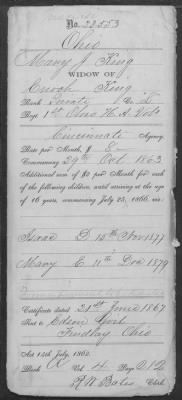 No. 22553
Ohio
Mary J. King
WIDOW OF
Enoch King
Rank Privt Co. "L"
Regt. 1st Ohio H. A. Vols
Cincinnati Agency.
Rate per Month, $ 8
Commencing 29th Oct 1863
Additional sum of $2 per Month for each
of the following children, until arriving at the age
of 16 years, commencing July 25, 1866, viz:
Isaac D 15th Nov 1877
Mary E. 11th Dec 1879
Certificate dated 21st June 1867
Sent to Edson Goit
Findlay Ohio
Act 14th July, 1862.
Book A Vol. 4 Page 212
R. N. Bates Clerk